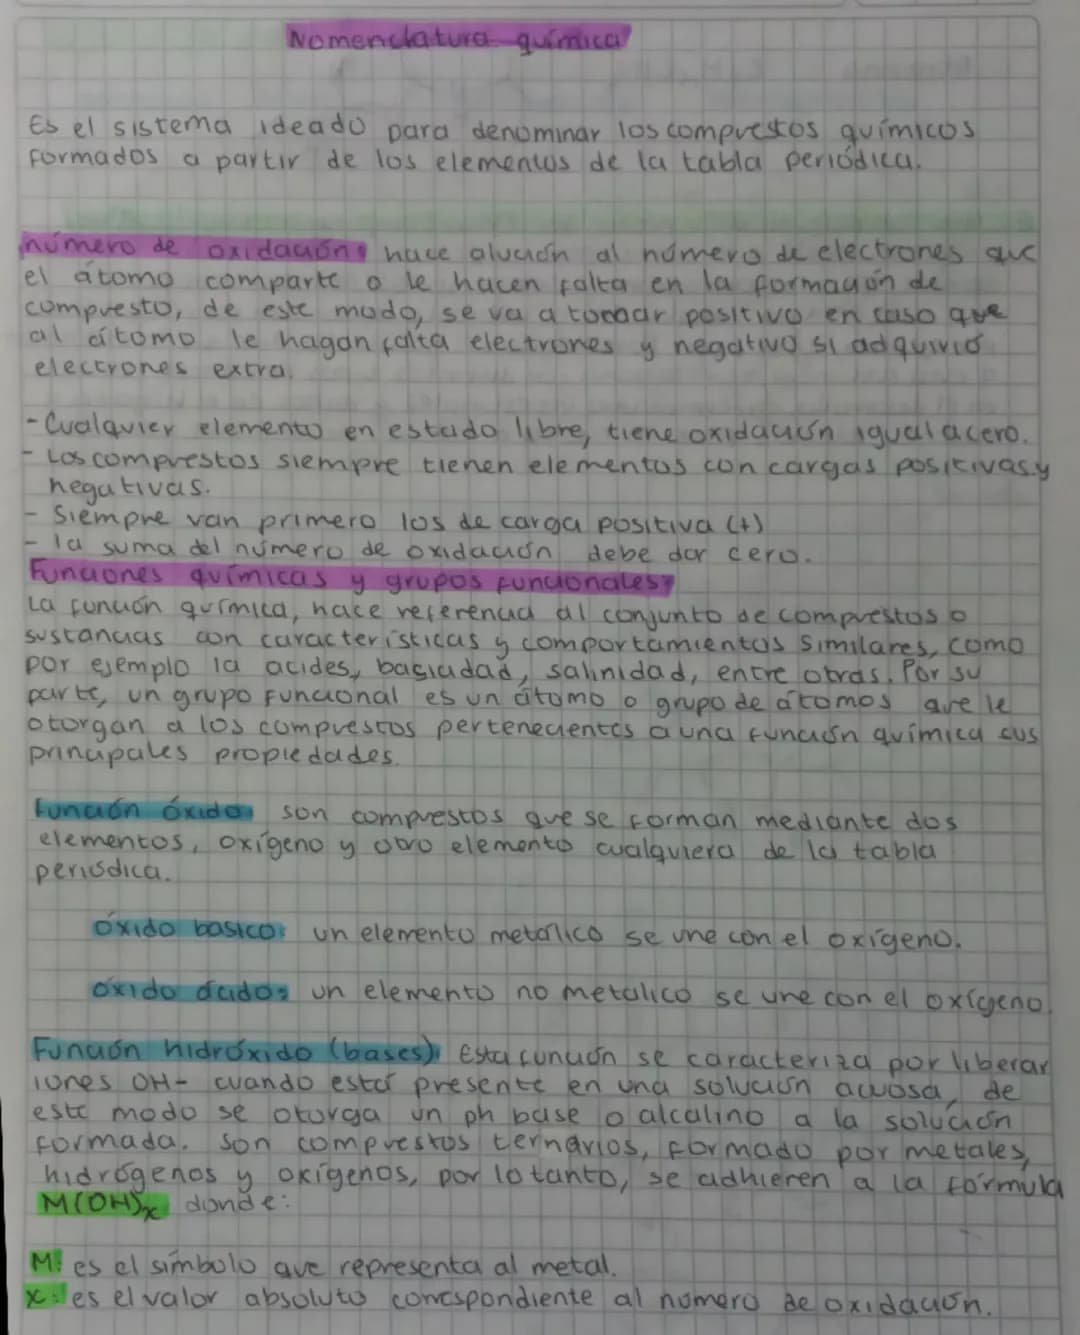 Nomenclatura química
Es el sistema ideado para denominar los compuestos químicos
formados a partir de los elementos de la tabla periódica.
número de oxidación: hace alución al número de electrones que
el átomo comparte o le hacen falta en la formación de
compuesto, de este modo, se va a tomar positivo en caso que
al átomo le hagan falta electrones y negativo si adquirió
electrones extra.
- Cualquier elemento en estado libre, tiene oxidación igual a cero.
- Los compuestos siempre tienen elementos con cargas positivas y
negativas.
- Siempre van primero los de carga positiva (+)
- la suma del número de oxidación debe dar cero.
Funciones químicas y grupos funcionales:
La función química, hace referencia al conjunto de compuestos o
sustancias con características y comportamientos similares, como
por ejemplo la acides, basicidad, salinidad, entre otras. Por su
parte, un grupo funcional es un átomo o grupo de átomos que le
otorgan a los compuestos pertenecientes a una función química sus
principales propiedades.
Función óxido: son compuestos que se forman mediante dos
elementos, oxígeno y otro elemento cualquiera de la tabla
periódica.
óxido basico: un elemento metálico se une con el oxígeno.
óxido ácido: un elemento no metalico se une con el oxígeno.
Función hidróxido (bases): Esta función se caracteriza por liberar
iones OH- cuando está presente en una solución acuosa, de
este modo se otorga un ph base o alcalino a la solución
formada. Son compuestos ternarios, formado por metales,
hidrógenos y oxígenos, por lo tanto, se adhieren a la fórmula
M(OH)x donde:
M: es el símbolo que representa al metal.
x: es el valor absoluto correspondiente al número de oxidación.